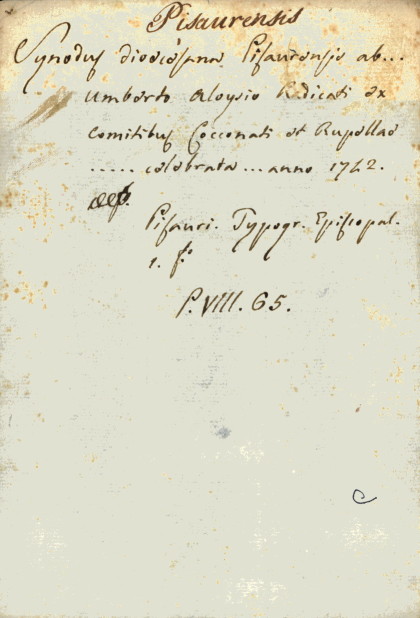 Pisaurensis
Synodus dioecesana Pisaurensis ab...
Umberto Aloysio Radicati ex
comitibus Cocconati et
..... celebrata ... anno 1742.
Pisauri. Typogr. Episcopal.
1. f.º
P. VIII. 65.